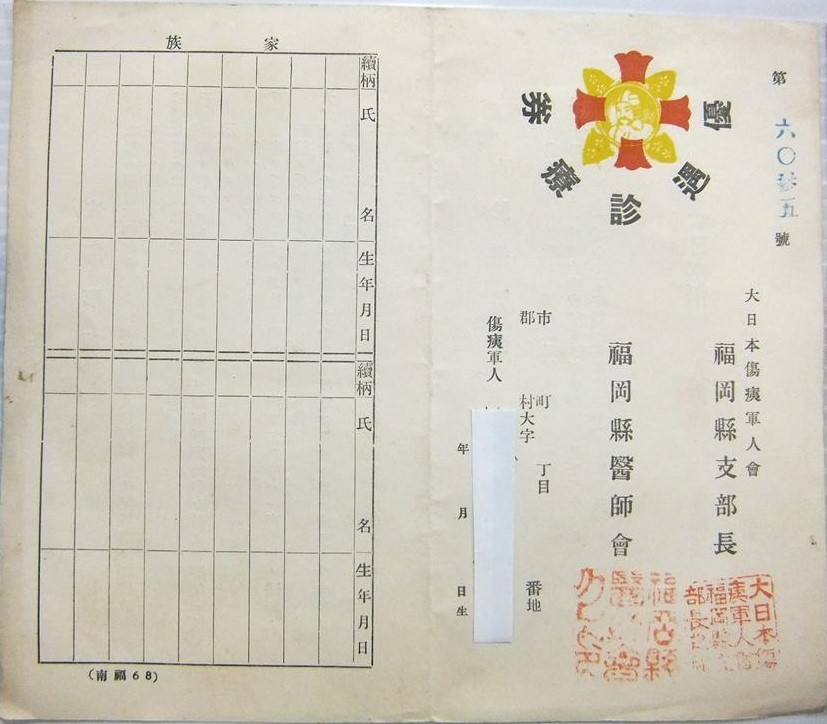 第六〇参五號
優遇診療券
大日本傷痍軍人會
福岡縣支部長
福岡縣醫師會
市 町 丁目
郡 村大字 番地
傷痍軍人
年 月 日生
大日本傷
痍軍人會
福岡縣支
部長
福岡縣
醫師會
家族
續柄 氏名 生年月日
續柄 氏名 生年月日
(南福68)